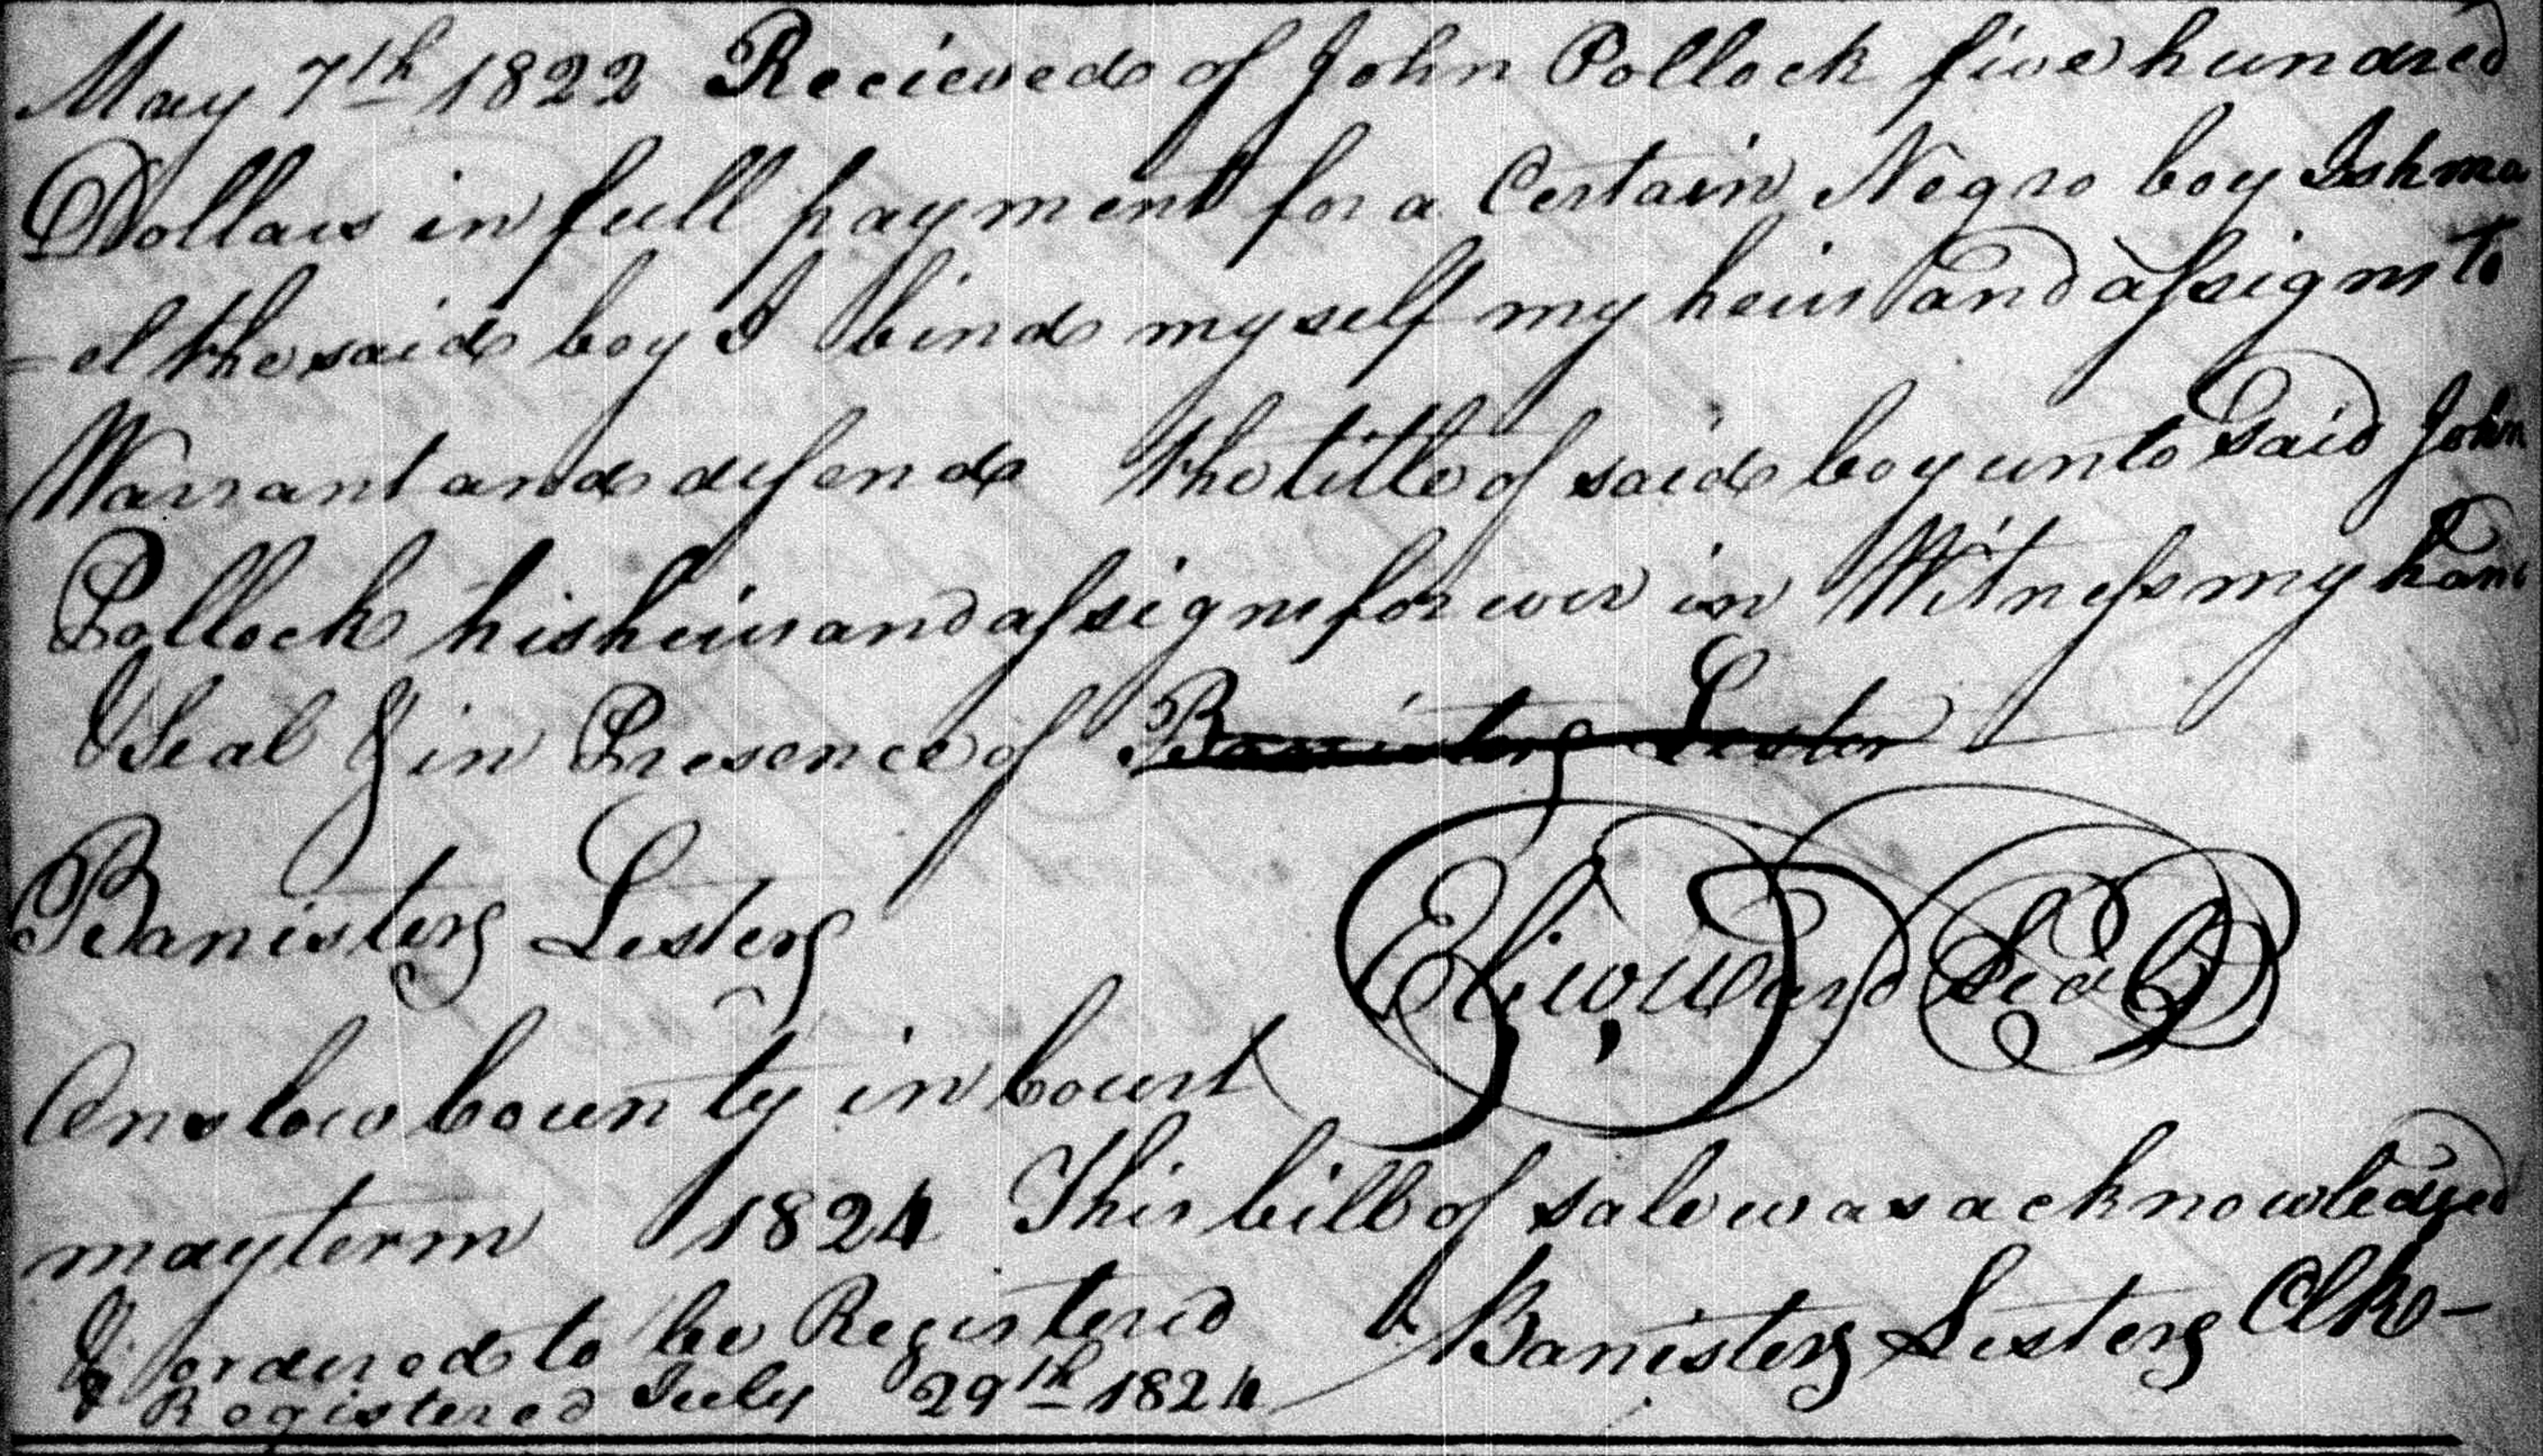 May 7th 1822 Recieved of John Pollock five hundred
Dollars in full payment for a Certain Negro boy Ishma
=el the said boy I bind myself my heirs and assigns to
Warrant and defend the title of said boy unto Said John
Pollock his heirs and assigns forever in Witness my hand
& Seal & in Presence of Banister Lester
Banister Lester
Eli W Ward Seal
Onslow County in Court
may term 1824 This bill of sale was acknowledged
& ordered to be Registered
Banister Lester Clk
& Registered July 29th 1824